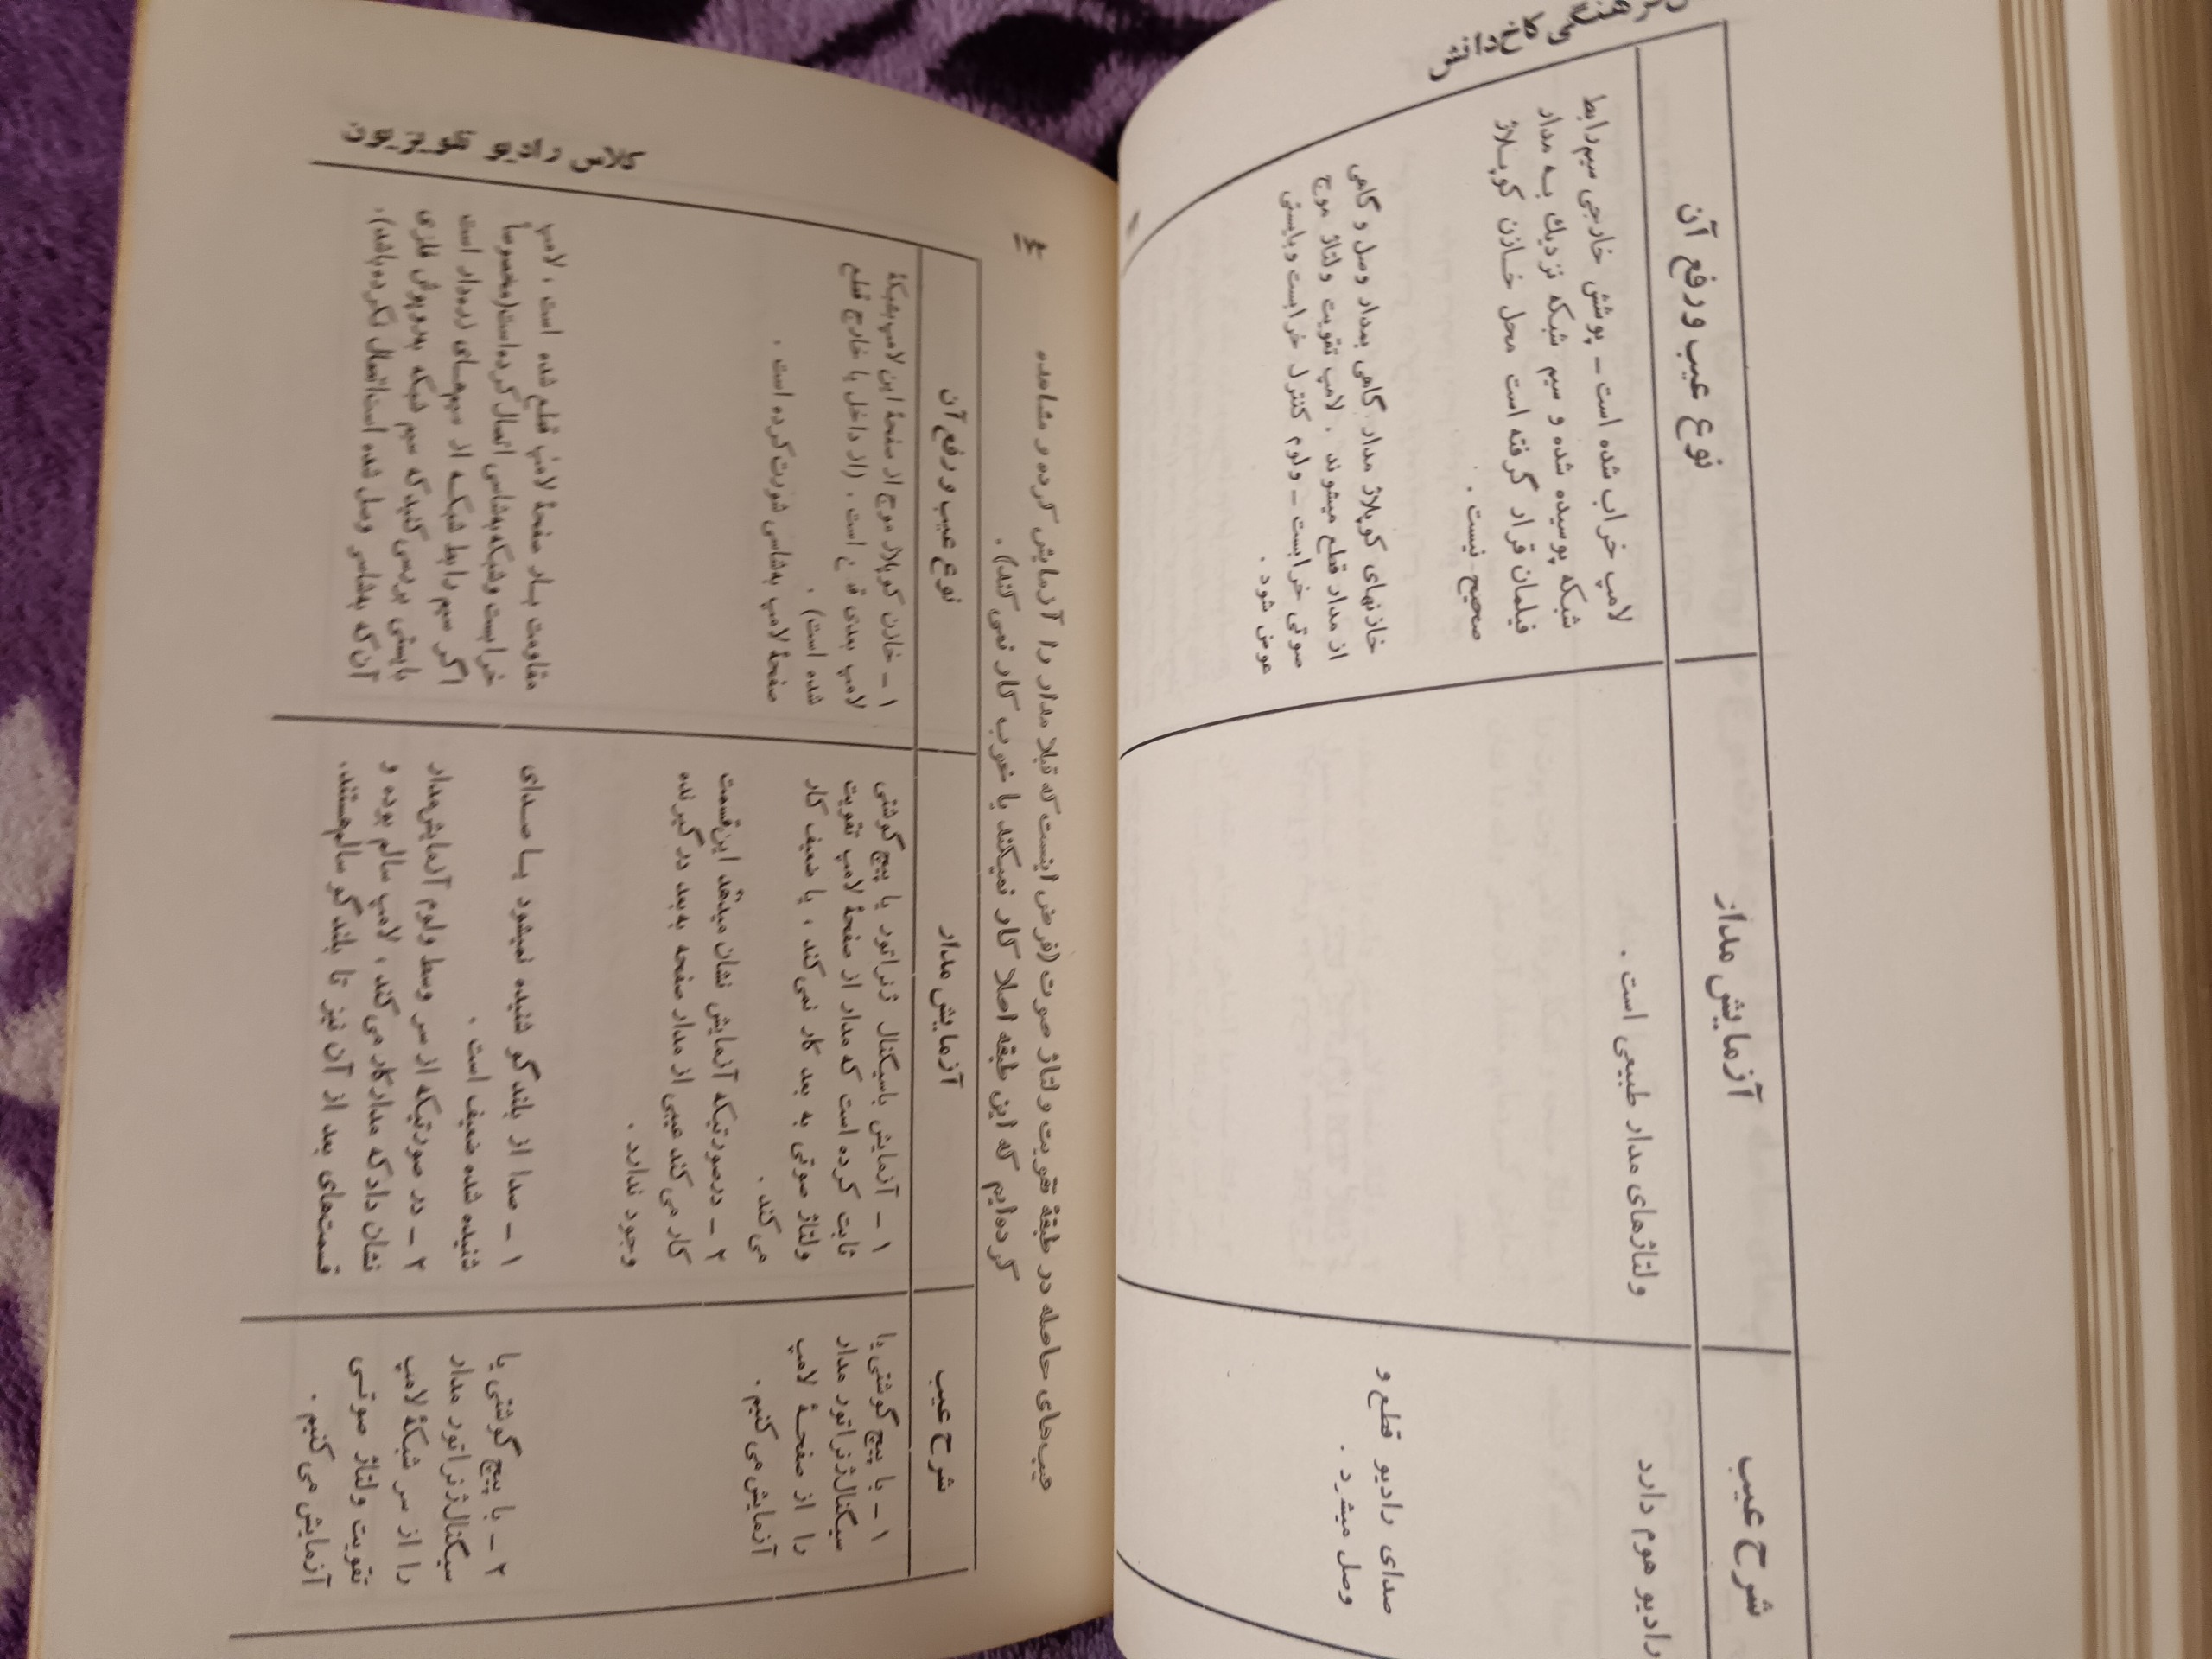 شرح عیب
آزمایش مدار
نوع عیب و رفع آن
رادیو هوم دارد
ولتاژهای مدار طبیعی است .
لامپ خراب شده است ـ پوشش خارجی سیم رابط
شبکه پوسیده شده و سیم شبکه نزدیك بـه مدار
فیلمان قرار گرفته است محل خـازن کوپـلاژ
صحیح نیست .
صدای رادیو قطع و
وصل میشرد .
خازنهای کوپلاژ مدار گاهی بمدار وصل و گاهی
از مدار قطع میشوند . لامپ تقویت ولتاژ موج
صوتی خرابست ـ ولوم کنترل خرابست و بایستی
عوض شود .
۱۳۴
عیب‌های حاصله در طبقهٔ تقویت ولتاژ صوت (فرض اینست که قبلا مدار را آزمایش کرده و مشاهده
کرده‌ایم که این طبقه اصلا کار نمیکند یا خوب کار نمی‌کند) .
شرح عیب
آزمایش مدار
نوع عیب و رفع آن
۱ ـ با پیچ گوشتی یا
سیگنال ژنراتور مدار
را از صفحـهٔ لامپ
آزمایش می‌کنیم .
۱ ـ آزمایش باسیگنال ژنراتور یا پیچ گوشتی
ثابت کرده است که مدار از صفحهٔ لامپ تقویت
ولتاژ صوتی به بعد کار نمی‌کند ، یا ضعیف کار
می‌کند .
۲ ـ درصورتیکه آزمایش نشان میدهد این‌قسمت
کار می‌کند عیبی از مدار صفحه به بعد در گیرنده
وجود ندارد .
۱ ـ خازن کوپلاژ موج از صفحهٔ این لامپ بشبکهٔ
لامپ بعدی است . (از داخل یا خارج قطع
شده است) .
صفحهٔ لامپ به‌شاسی شورت کرده است .
۲ ـ با پیچ گوشتی یا
سیگنال ژنراتور مدار
را از سر شبکهٔ لامپ
تقویت ولتاژ صوتـی
آزمایش می‌کنیم .
۱ ـ صدا از بلندگو شنیده نمیشود یـا صـدای
شنیده شده ضعیف است .
۲ ـ در صورتیکه از سر وسط ولوم آزمایش‌مدار
نشان داد که مدارکار می‌کند ، لامپ سالم بوده و
قسمت‌های بعد از آن نیز تا بلندگو سالم‌هستند.
مقاومت بـار صفحهٔ لامپ قطع شده است ، لامپ
خرابست وشبکه به‌شاسی اتصال کرده‌است(مخصوصاً
اگر سیم رابط شبکـه از سیم‌هـای زره‌دار است
بایستی بررسی کنید که سیم شبکه به‌روپوش فلزی
آن که به‌شاسی وصل شده است‌اتصال نکرده‌باشد).
کلاس رادیو تلویزیون